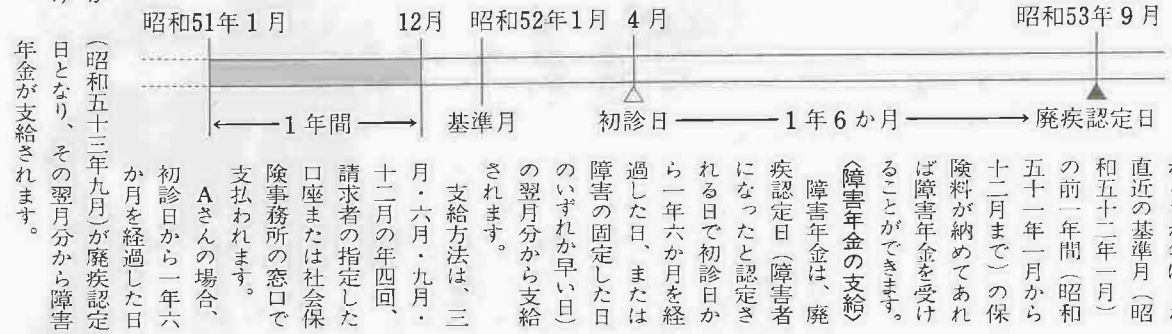 昭和51年1月
12月
昭和52年1月
4月
昭和53年9月
1年間
基準月
初診日
1年6か月
廃疾認定日
直近の基準月（昭
和五十二年一月）
の前一年間（昭和
五十一年一月から
十二月まで）の保
険料が納めてあれ
ば障害年金を受け
ることができます。
〈障害年金の支給〉
障害年金は、廃
疾認定日（障害者
になったと認定さ
れる日で初診日か
ら一年六か月を経
過した日、または
障害の固定した日
のいずれか早い日）
の翌月分から支給
されます。
支給方法は、三
月・六月・九月・
十二月の年四回、
請求者の指定した
口座または社会保
険事務所の窓口で
支払われます。
Aさんの場合、
初診日から一年六
か月を経過した日
（昭和五十三年九月）が廃疾認定
日となり、その翌月分から障害
年金が支給されます。